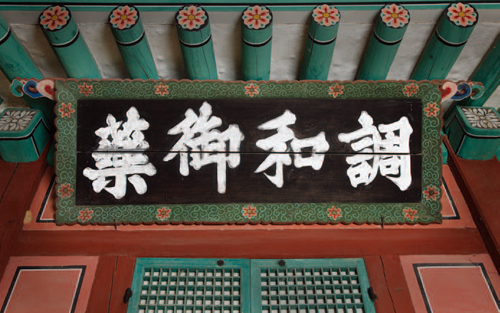 調和御藥